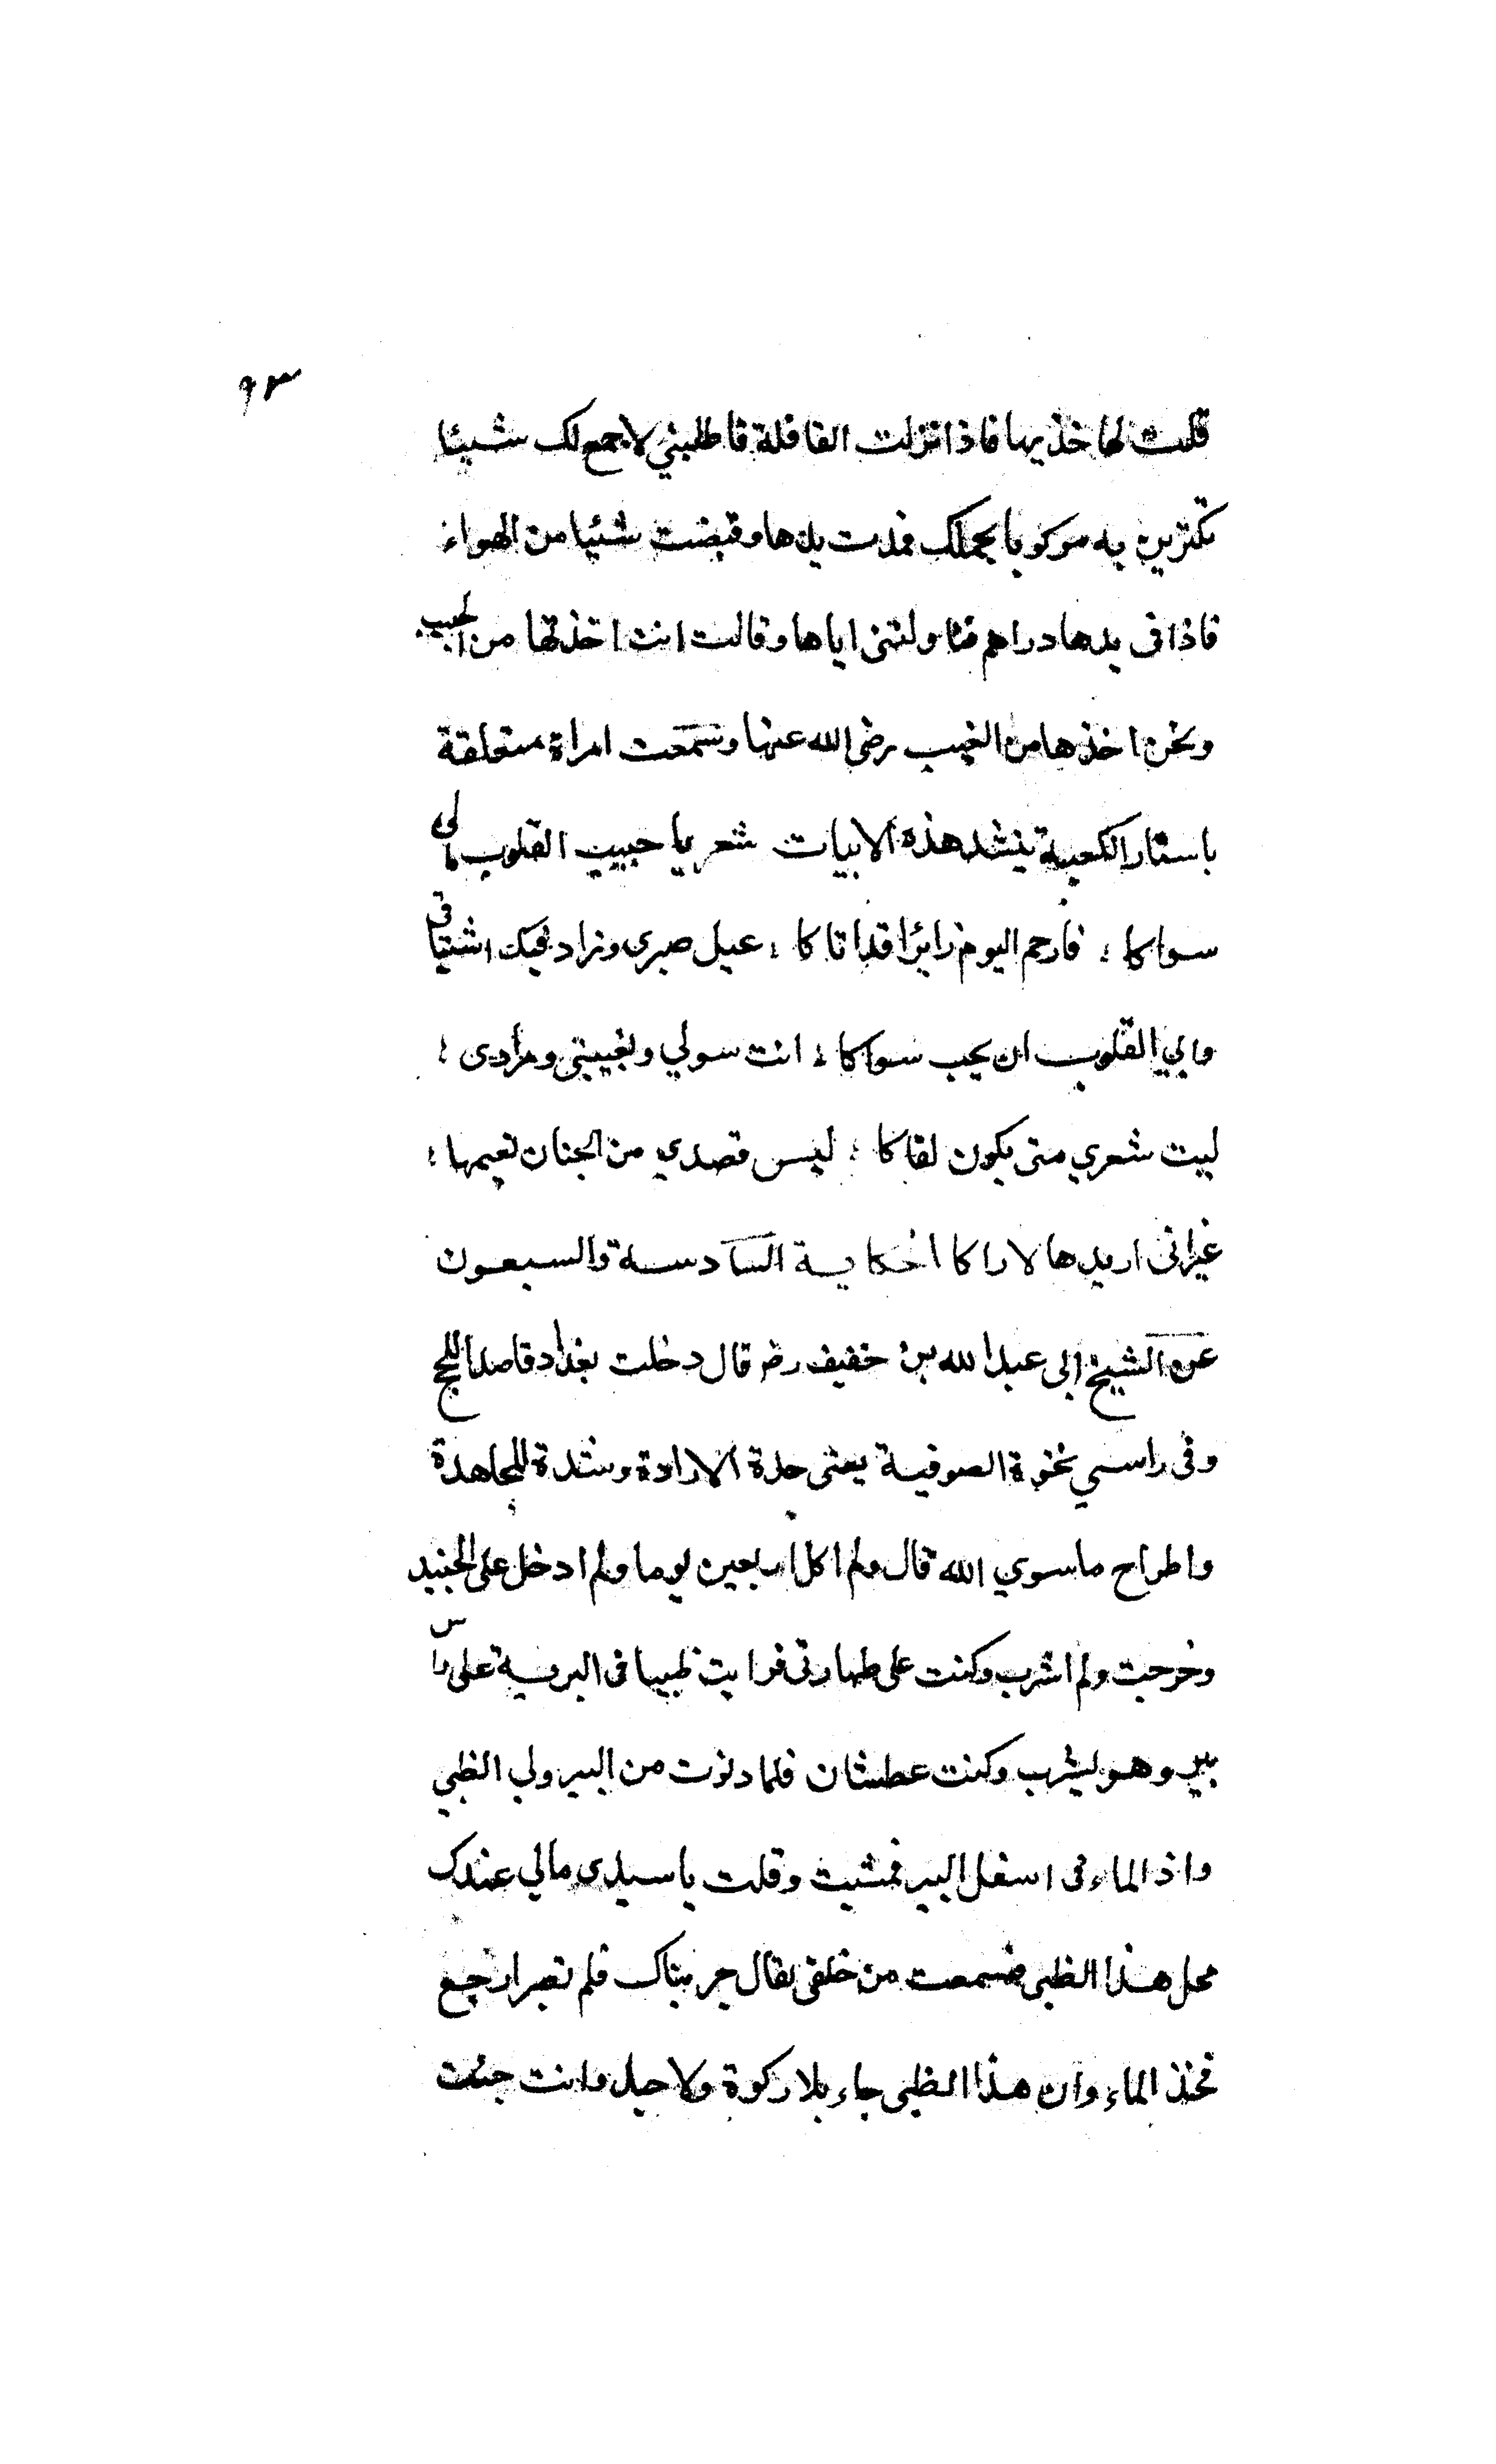 ٩٣
قلت لها خذيها فاذا نزلت القافلة فاطلبيني لاجمع لك شيئا
تكترين به مركوبا يحملك فمدت يدها وقبضت شئيا من الهواء
فاذا فى يدها دراهم فناولتنى اياها وقالت انت اخذتها من الجيب
ونحن اخذها من الغيب رضى الله عنها وسمعت امراة متعلقة
باستار الكعبة ينشد هذه الابيات شعر يا حبيب القلوب مالى
سواكا ؛ فارحم اليوم زايرًا قد اتاكا ؛ عيل صبرى وزاد فيك اشتياقى
وابي القلوب ان يحب سواكا ؛ انت سولي وبغييتى ومرادى ؛
ليت شعري متى يكون لقاكا ؛ ليس قصدي من الجنان نعيمها ؛
غيرانى اريدها لاراكا الحكاية السادسة والسبعون
عن الشيخ ابى عبد الله بن خفيف رضـ قال دخلت بغداد قاصدا للحج
وفى راسي نخوة الصوفية يعنى حدة الارادة وشدة المجاهدة
واطراح ماسوي الله قال ولم اكل اربعين يوما ولم ادخل على الجنيد
وخرجت ولم اشرب وكنت على طهارتى فرايت ظبيا فى البرية على راس
بير وهو يشرب وكنت عطشان فلما دنوت من البير ولي الظبي
واذ الماء فى اسفل البير فمشيت وقلت يا سيدى مالي عندك
محل هذا الظبى فسمعت من خلفى يقال جربناك فلم تصبر ارجع
فخذ الماء وان هذا الظبى جاء بلا ركوة ولا حبل وانت جئت